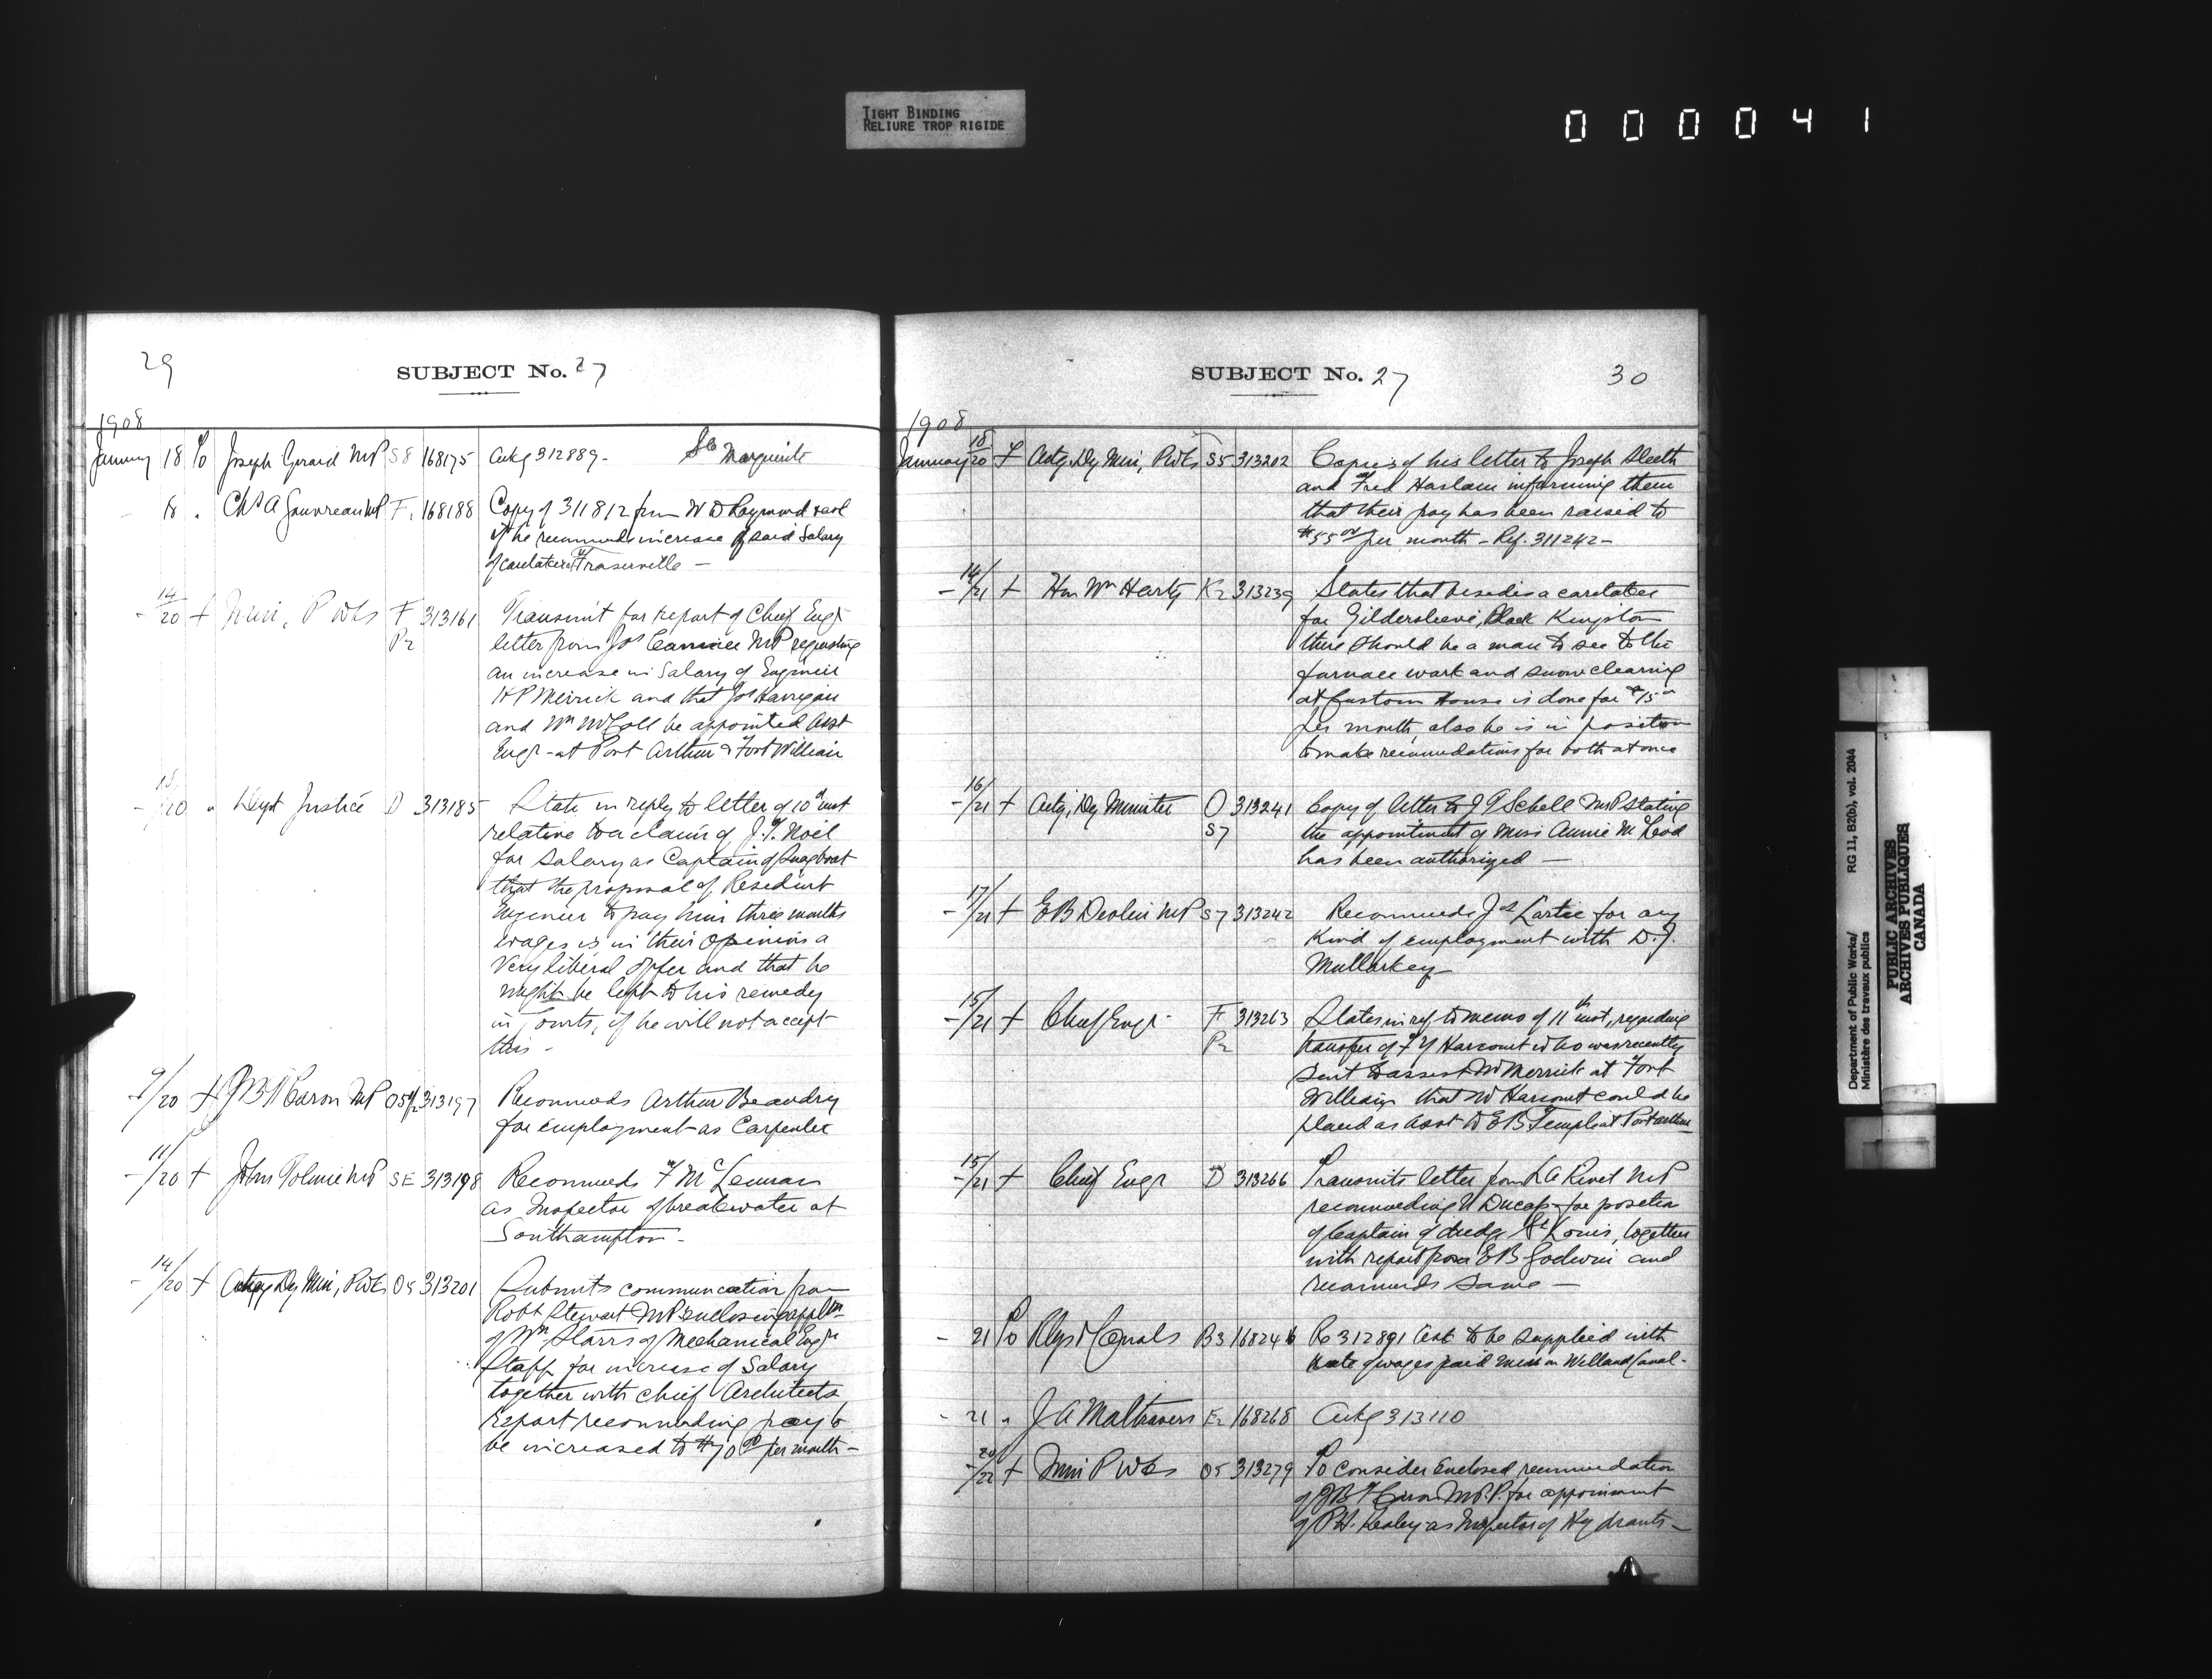 TIGHT BINDING
RELIURE TROP RIGIDE
000041
29
SUBJECT No. 27
1908
January 18 To Joseph Girard MP S8 168175 Ackg 312889- Ste Marguerite
18 " Chs A Gauvreau MP F. 168188 Copy of 311812 from W D Raymond & ask
if he recommends increase of said Salary
of caretaker of Fraserville —
14/20 f Min, P Wks F 313161 Transmit for report of Chief Engr
P2 letter from Jas Conmee MP requesting
an increase in Salary of Engineer
H P Merrick and that Jos Harrigan
and Wm McColl be appointed Asst
Engr - at Port Arthur & Fort William
18/20 " Dept Justice D 313185 State in reply to letter of 10th inst
relative to a claim of J. T. Noël
for Salary as Captain of Snagboat
that the proposal of Resident
Engineer to pay him three months
wages is in their opinions a
very liberal offer and that he
might be left to his remedy
in Courts, if he will not accept
this -
9/20 f J B T Caron MP 313197 Recommends Arthur Beaudry
for employment as Carpenter
11/20 f John Tolmie MP SE 313198 Recommends F McLennan
as Inspector of breakwater at
Southampton -
14/20 f Actg Dy Min, P Wks O5 313201 Submits communication from
Robt Stewart MP enclosing appln
of Wm Starrs of Mechanical Engr
Staff for increase of Salary
together with Chief Architects
report recommending pay to
be increased to $70.00 per month -
SUBJECT No. 27
30
1908
January 18/20 f Actg, Dy Min, P Wks S5 313202 Copies of his letter to Joseph Sleeth
and Fred Haslam informing them
that their pay has been raised to
$55.00 per month - Ref. 311242 -
14/21 f Hon Wm Harty K2 313239 States that besides a caretaker
for Gildersleeve, Block Kingston
there should be a man to see to the
furnace work and snow clearing
at Custom House is done for $15.00
per month, also he is in position
to make recomendations for both at once
16/21 f Actg, Dy Minister O 313241 Copy of letter to J T Schell MP stating
S7 the appointment of Miss Annie McLeod
has been authorized —
17/21 f E B Devlin MP S7 313242 Recommends Jos Lartie for any
Kind of employment with D. J.
Mullarkey
15/21 f Chief Engr F 313263 States in ref to memo of 11th inst, regarding
P2 transfer of F Y Harcourt who was recently
sent to assist Mr Merrick at Fort
William that Mr Harcourt could be
placed as Asst to E B Temple at Port Arthur
15/21 f Chief Engr D 313266 Transmits letter from L A Rivet MP
recommending U Ducap for position
of Captain of dredge St Louis, together
with report from E B Godwin and
recommends same —
21 To Rlys & Canals B3 168246 Re 312891 Ask to be supplied with
rate of wages paid men on Welland Canal -
21 " J A Maltravers E2 168268 Ackg 313110
20/22 f Min P Wks O5 313279 To consider enclosed recommendation
of J B T Caron M.P. for appoinment
of P. H. Kealey as Inspector of Hydrants -
Department of Public Works/ RG 11, B2(b), vol. 2044
Ministère des travaux publics
PUBLIC ARCHIVES
ARCHIVES PUBLIQUES
CANADA